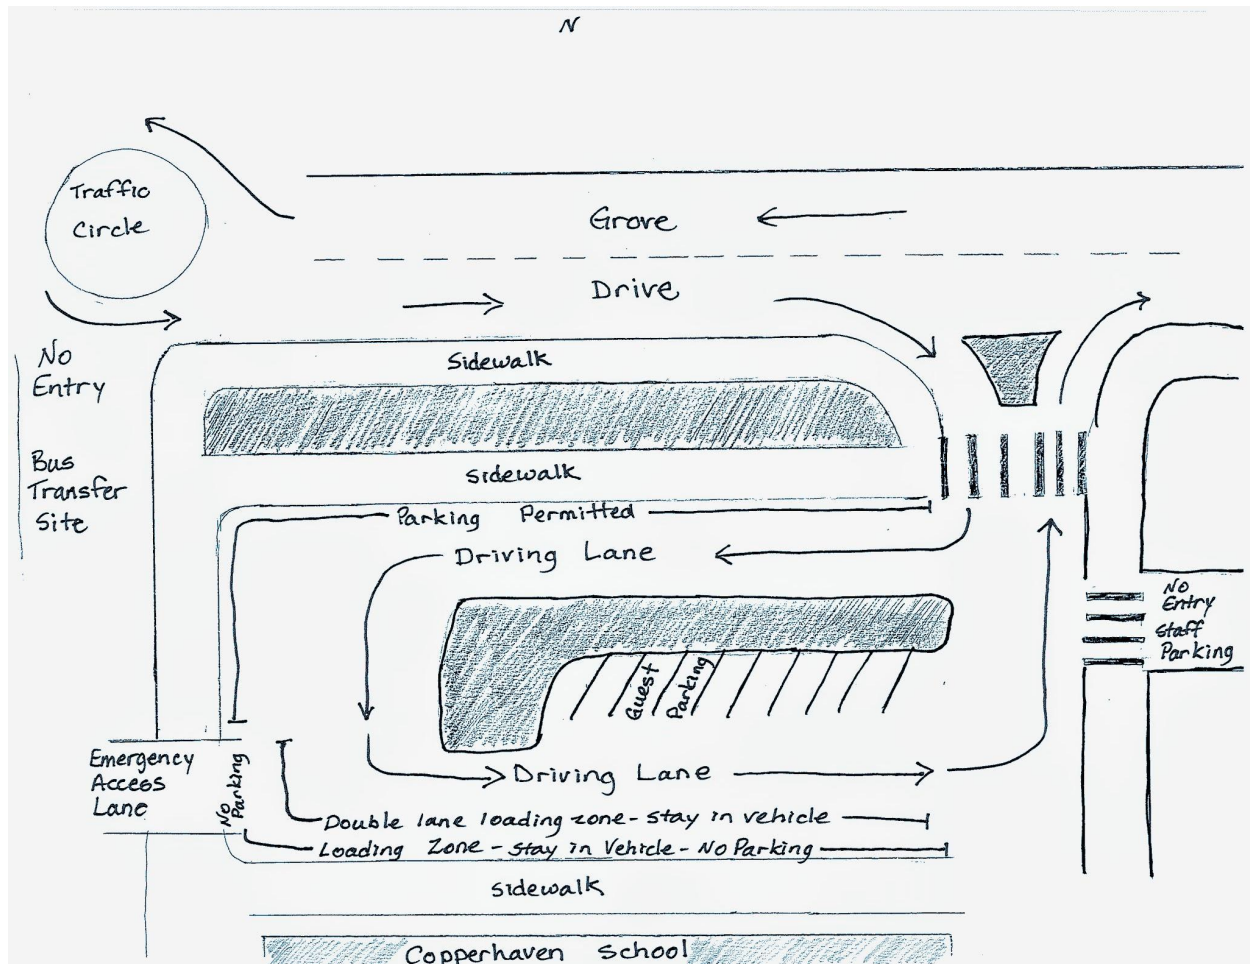 N
Traffic
Circle
Grove
Drive
No
Entry
Sidewalk
Bus
Transfer
Site
Sidewalk
Parking Permitted
Driving Lane
No
Entry
Staff
Parking
Guest
Parking
Emergency
Access
Lane
No
Parking
Driving Lane
Double lane loading zone - stay in vehicle
Loading Zone - Stay in Vehicle - No Parking
Sidewalk
Copperhaven School